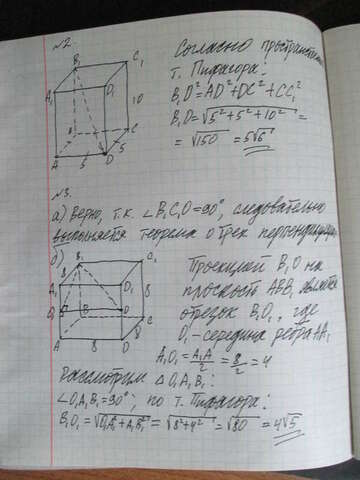 №2.
B₁ C₁
A₁ D₁
10
B C
A 5 D 5
Согласно пространствен
т. Пифагора:
B₁D²=AD²+DC²+CC₁²
B₁D=√5²+5²+10² =
= √150 = 5√6
№3.
а) Верно, т.к. ∠B₁C₁O=90°, следовательно
выполняется теорема о трех перпендикуляр
б)
B₁ C₁
8
A₁ D₁
8
O₁ B O C
A 8 D
Проекцией B₁O на
плоскость ABB₁ является
отрезок B₁O₁, где
O₁-середина ребра AA₁
A₁O₁ = A₁A/2 = 8/2 = 4
Рассмотрим △O₁A₁B₁:
∠O₁A₁B₁=90°, по т. Пифагора:
B₁O₁ = √O₁A₁²+A₁B₁² = √8²+4² = √80 = 4√5